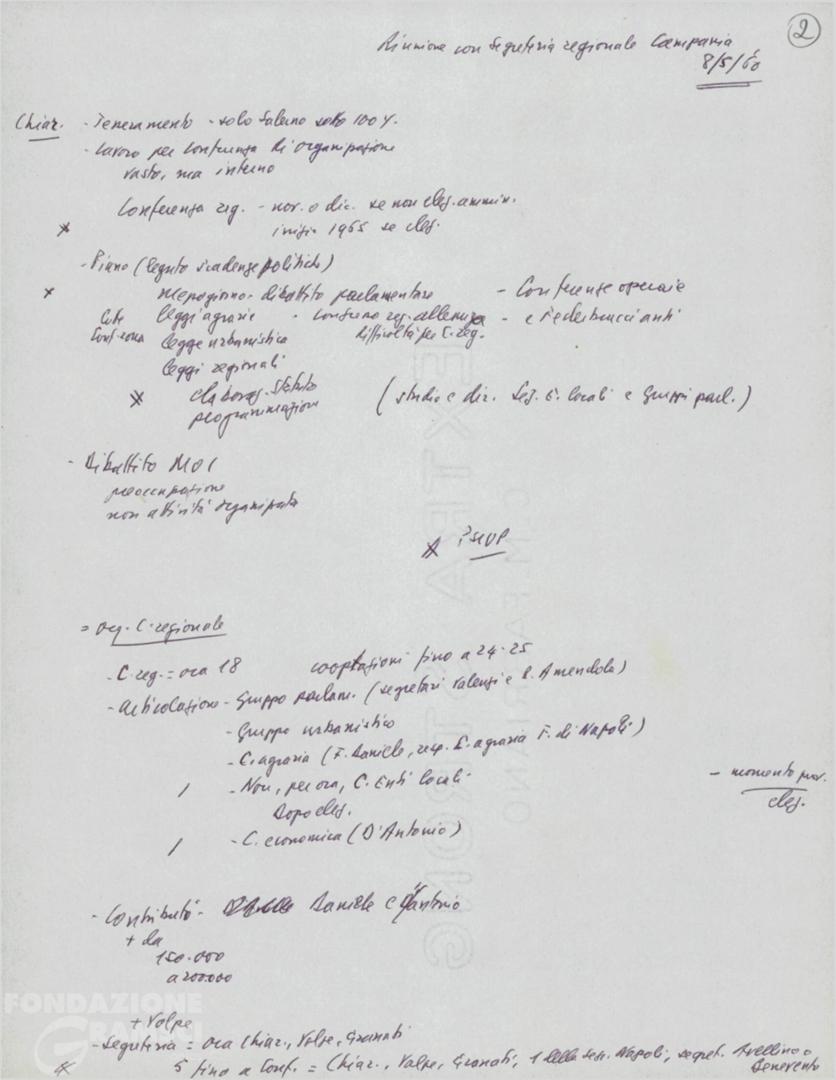 2
Riunione con Segreteria regionale Campania
8/5/60
Chiar. - Tesseramento - solo Salerno sotto 100%.
- Lavoro per Conferenza di organizzazione
vasto, ma interno
Conferenza reg. - nov. o dic. se non elez. ammin.
inizio 1965 se elez.
- Piano (legato scadenze politiche)
mezzogiorno - dibattito parlamentare - Conferenze operaie
leggi agrarie - reg. - e Federbraccianti
legge urbanistica difficoltà per C. reg.
leggi regionali
elaboraz. Statuto
programmazione (studio e dir. Sez. E. locali e Gruppi parl.)
- Dibattito MOC
preoccupazione
non attività organizzata
PSIUP
= org. C. regionale
- C. reg. = ora 18 cooptazioni fino a 24-25
- articolazione - Gruppo parlam. (segretari Valenzi e P. Amendola)
- Gruppo urbanistico
- C. agraria (F. Daniele, resp. C. agraria F. di Napoli)
- Non, per ora, C. Enti locali - momento
Dopo elez. elez.
- C. economica (D'Antonio)
- Contributo - Daniele e D'Antonio
+ da
150.000
a 200.000
FONDAZIONE
GRAMSCI
+ Volpe
- Segreteria = ora Chiar., Volpe, Granati
5 fino a Conf. = Chiar., Volpe, Granati, 1 della Segr. Napoli, segret. Avellino o
Benevento